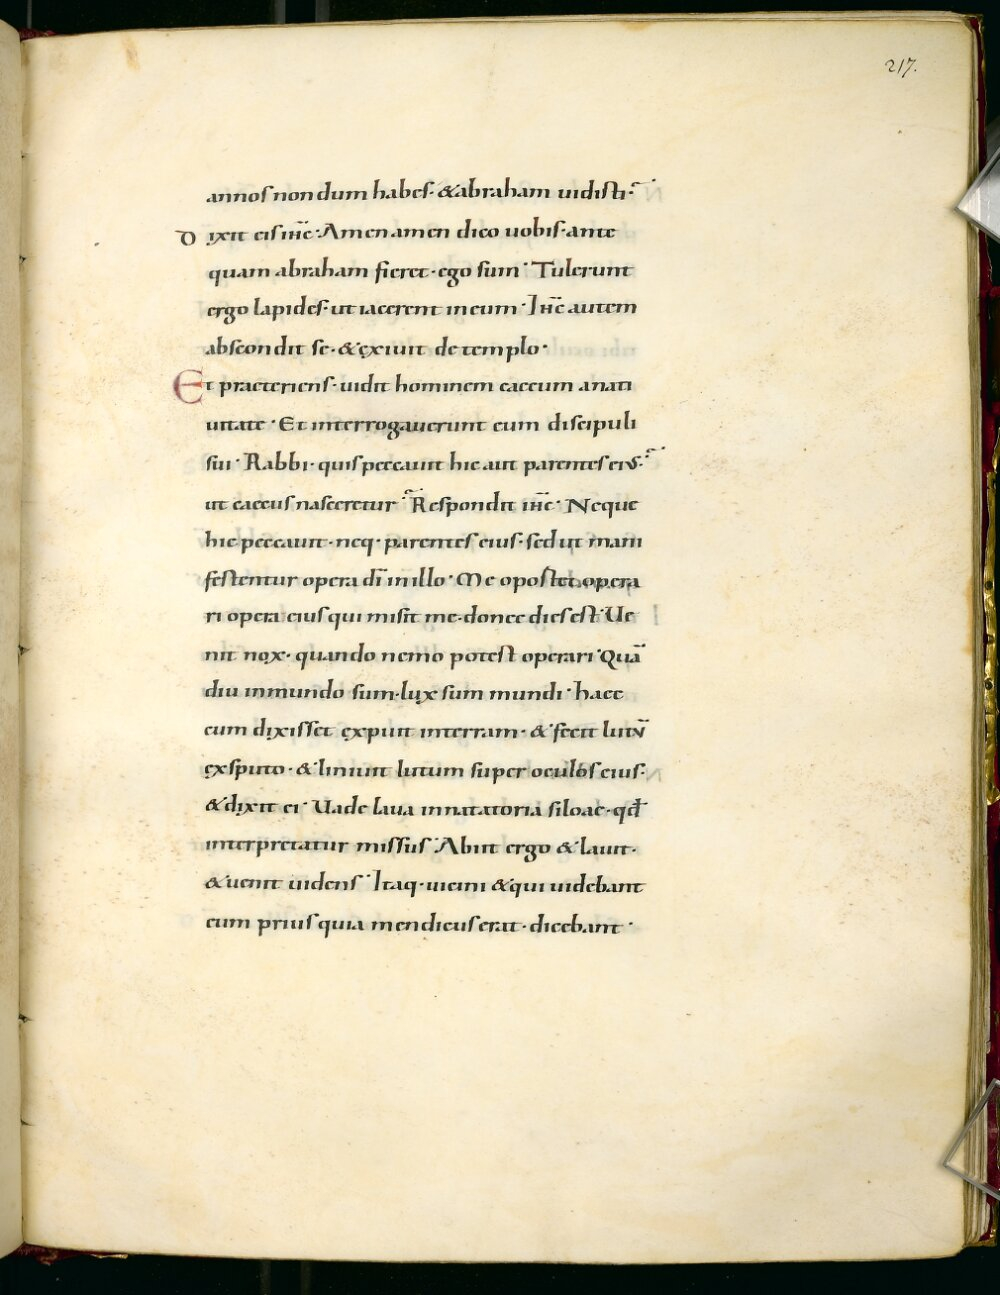 217.
annos nondum habes· &abraham uidisti·
Dixit eis ihc̄·Amen amen dico uobis·ante
quam abraham fieret·ego sum· Tulerunt
ergo lapides·ut iacerent in eum·Ihc̄ autem
abscondit se·&exiuit de templo·
Et praeteriens·uidit hominem caecum a nati
uitate· Et interrogauerunt eum discipuli
sui·Rabbi·quis peccauit hic aut parentes eius·
ut caecus nasceretur· Respondit ihc̄· Neque
hic peccauit·neq·parentes eius·sed ut mani
festentur opera dī in illo·Me opostet opera
ri opera eius qui misit me·donec dies est·Ue
nit nox·quando nemo potest operari·Quā
diu in mundo sum·lux sum mundi·haec
cum dixisset expuit in terram·&fecit lutū
ex sputo·&liniuit lutum super oculos eius·
&dixit ei·Uade laua in natatoria siloae·qđ
interpretatur missus·Abiit ergo &lauit·
&uenit uidens·Itaq·uicini &qui uidebant
eum prius quia mendicus erat·dicebant·